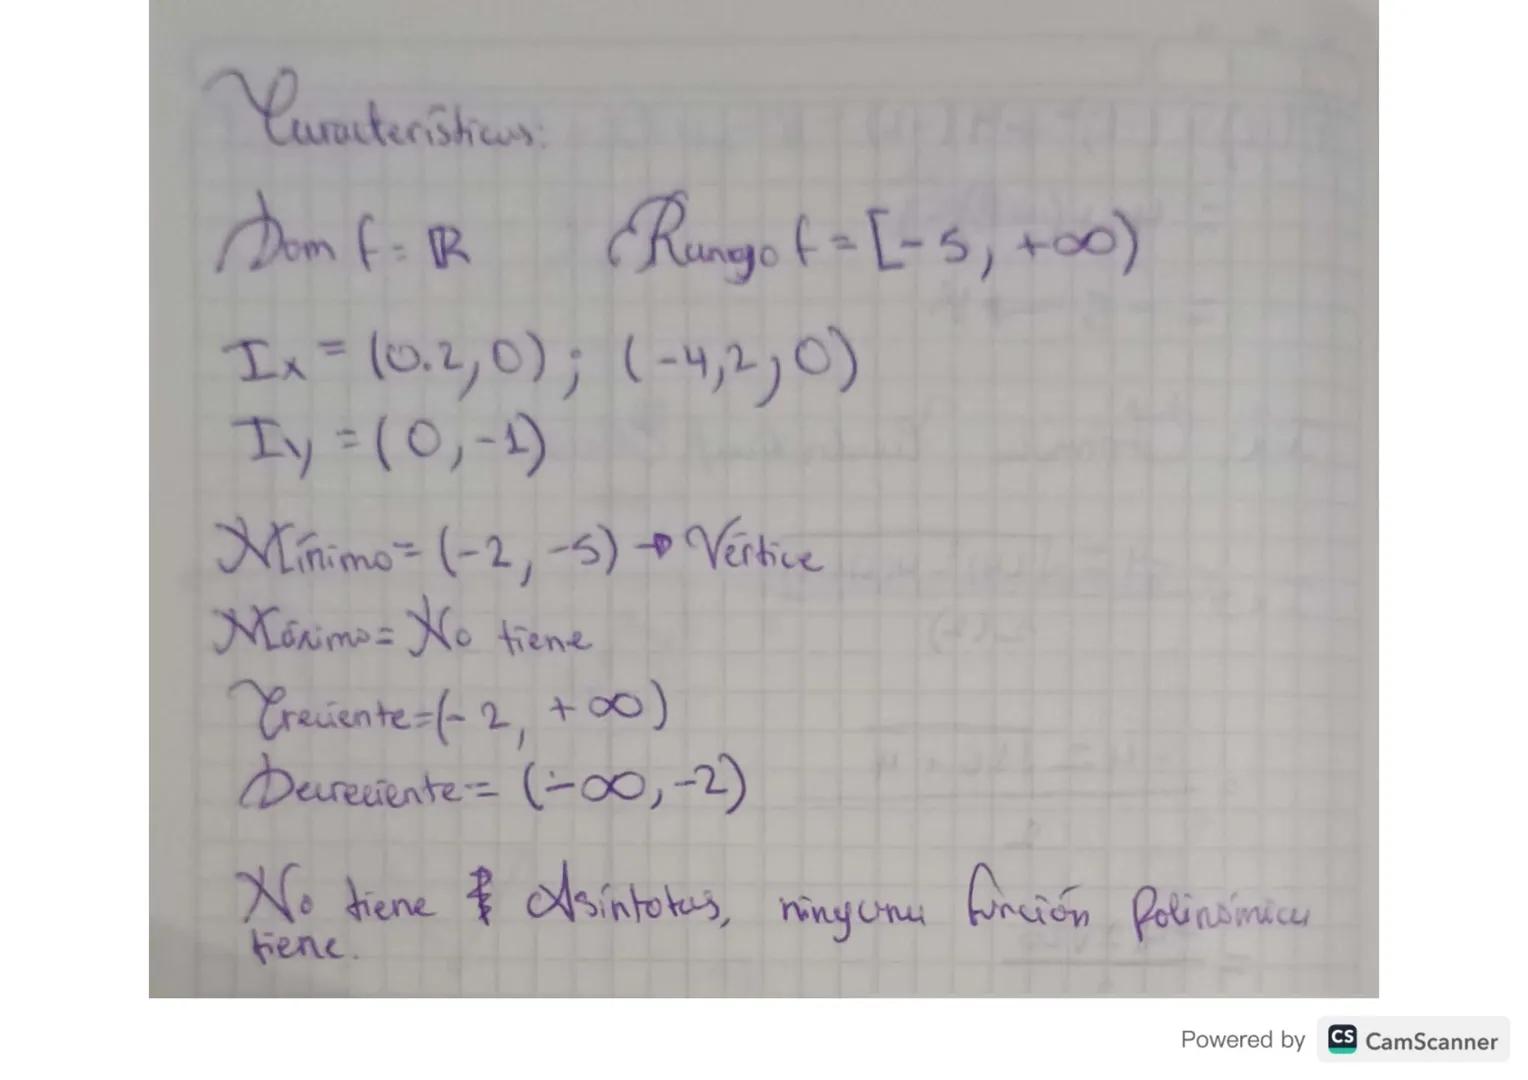 Características:
Dom f = ℝ Rango f = [-5, +∞)
Ix = (0.2, 0); (-4,2, 0)
Iy = (0, -1)
Mínimo = (-2, -5) → Vértice
Máximo = No tiene
Creciente = (-2, +∞)
Decreciente = (-∞, -2)
No tiene Asíntotas, ninguna función Polinómica
tiene.
Powered by CS CamScanner